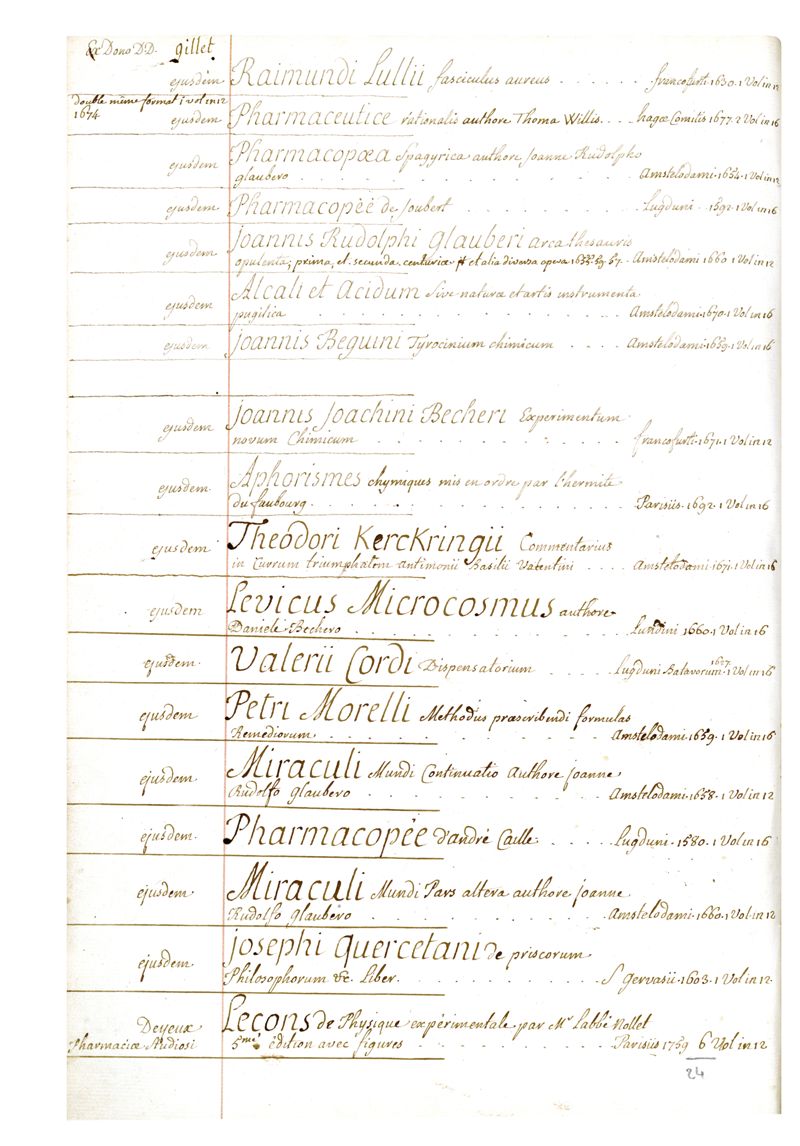 Ex Dono D.D. gillet
ejusdem Raimundi Lullii fasciculus aureus . . . . . . francofurti. 1630. 1 Vol in 12
double même format 1 vol in 12
1674
ejusdem Pharmaceutice rationalis authore Thoma Willis. . . hagæ Comitis 1677. 2 Vol in 16
ejusdem Pharmacopœa Spagyrica authore Joanne Rudolpho
glaubero . . . . . . . . . . Amstelodami. 1654. 1 Vol in 12
ejusdem Pharmacopéé de Joubert . . . . . . . Lugduni . 1592. 1 Vol in 16
ejusdem Joannis Rudolphi Glauberi arca thesauris
opulenta, prima, et secunda centuriæ et alia diversa opera . Amstelodami 1660 1 Vol in 12
ejusdem Alcali et Acidum sive naturæ et artis instrumenta
pugilica . . . . . . . . . . Amstelodami. 1670. 1 Vol in 16
ejusdem Joannis Beguini Tyrocinium chimicum . . . . Amstelodami. 1659. 1 Vol in 16
ejusdem Joannis Joachini Becheri Experimentum
novum Chimicum . . . . . . . . . francofurti. 1671. 1 Vol in 12
ejusdem Aphorismes chymiques mis en ordre par l'hermite
du faubourg . . . . . . . . . . Parisiis. 1692. 1 Vol in 16
ejusdem Theodori Kerckringii Commentarius
in Currum triumphalem antimonii Basilii Valentini . . . . Amstelodami. 1671. 1 Vol in 16
ejusdem Levicus Microcosmus authore
Daniele Bechero . . . . . . . . . Lundini 1660. 1 Vol in 16
ejusdem Valerii Cordi Dispensatorium . . . . Lugduni Batavorum. 1627. 1 Vol in 16
ejusdem Petri Morelli Methodus præscribendi formulas
Remediorum . . . . . . . . . . Amstelodami. 1659. 1 Vol in 16
ejusdem Miraculi Mundi Continuatio Authore Joanne
Rudolfo glaubero . . . . . . . . Amstelodami. 1658. 1 Vol in 12
ejusdem Pharmacopée d'andré Caille . . . . Lugduni. 1580. 1 Vol in 16
ejusdem Miraculi Mundi Pars altera authore joanne
Rudolfo glaubero . . . . . . . . Amstelodami. 1660. 1 Vol in 12
ejusdem josephi Quercetani de priscorum
Philosophorum &c. Liber. . . . . . . . S gervasii. 1603. 1 Vol in 12.
Deyeux Leçons de Physique expérimentale par Mr Labbé Nollet
Pharmaciæ Studiosi 5me édition avec figures . . . . . . . . Parisiis 1759 6 Vol in 12
24